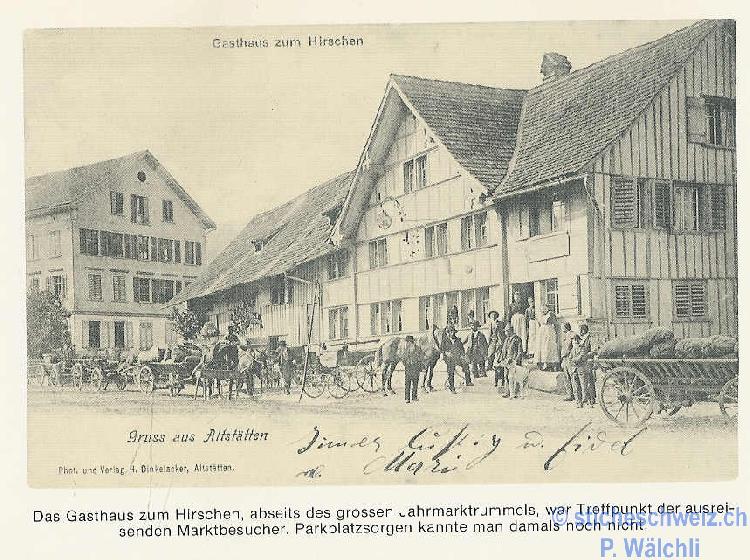 Gasthaus zum Hirschen
Gruss aus Altstätten
Immer lustig u. fidel
Marie
Phot. und Verlag. H. Dinkelacker, Altstätten.
Das Gasthaus zum Hirschen, abseits des grossen Jahrmarktrummels, war Treffpunkt der ausrei-
senden Marktbesucher. Parkplatzsorgen kannte man damals noch nicht
© sticheschweiz.ch
P. Wälchli